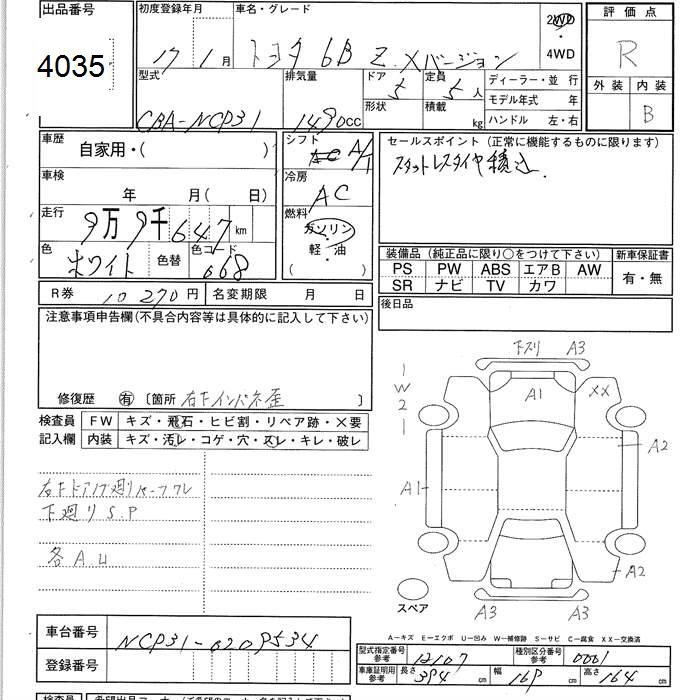 出品番号
4035
初度登録年月
17 1月
車名・グレード
トヨタ bB Z.Xバージョン
2WD
・
4WD
評価点
R
外装 内装
B
型式
CBA-NCP31
排気量
1490cc
ドア
5
形状
定員
5人
積載
kg
ディーラー・並行
モデル年式 年
ハンドル 左・右
車歴
自家用・( )
車検
年 月( 日)
走行
9万9千647km
色
ホワイト
色替
色コード
068
シフト
AC A/T
冷房
AC
燃料
ガソリン
・
軽・油
( )
セールスポイント(正常に機能するものに限ります)
スタットレスタイヤ積込
装備品(純正品に限り○をつけて下さい)
新車保証書
PS PW ABS エアB AW
SR ナビ TV カワ
有・無
R券 10270円
名変期限 月 日
後日品
注意事項申告欄(不具合内容等は具体的に記入して下さい)
修復歴 有 〔箇所 右Fインパネ歪 〕
検査員
記入欄
FW キズ・飛石・ヒビ割・リペア跡・×要
内装 キズ・汚レ・コゲ・穴・スレ・キレ・破レ
下廻りS.P
各A.U
1
W
2
1
下スリ A3
A1
XX
A2
A1
A2
A3
A3
スペア
車台番号 NCP31-0209534
登録番号
A―キズ E―エクボ U―凹み W―補修跡 S―サビ C―腐食 XX―交換済
型式指定番号
参考
12107
種別区分番号
参考
0001
車庫証明用
参考
長さ 394cm
幅 169cm
高さ 164cm
検査員